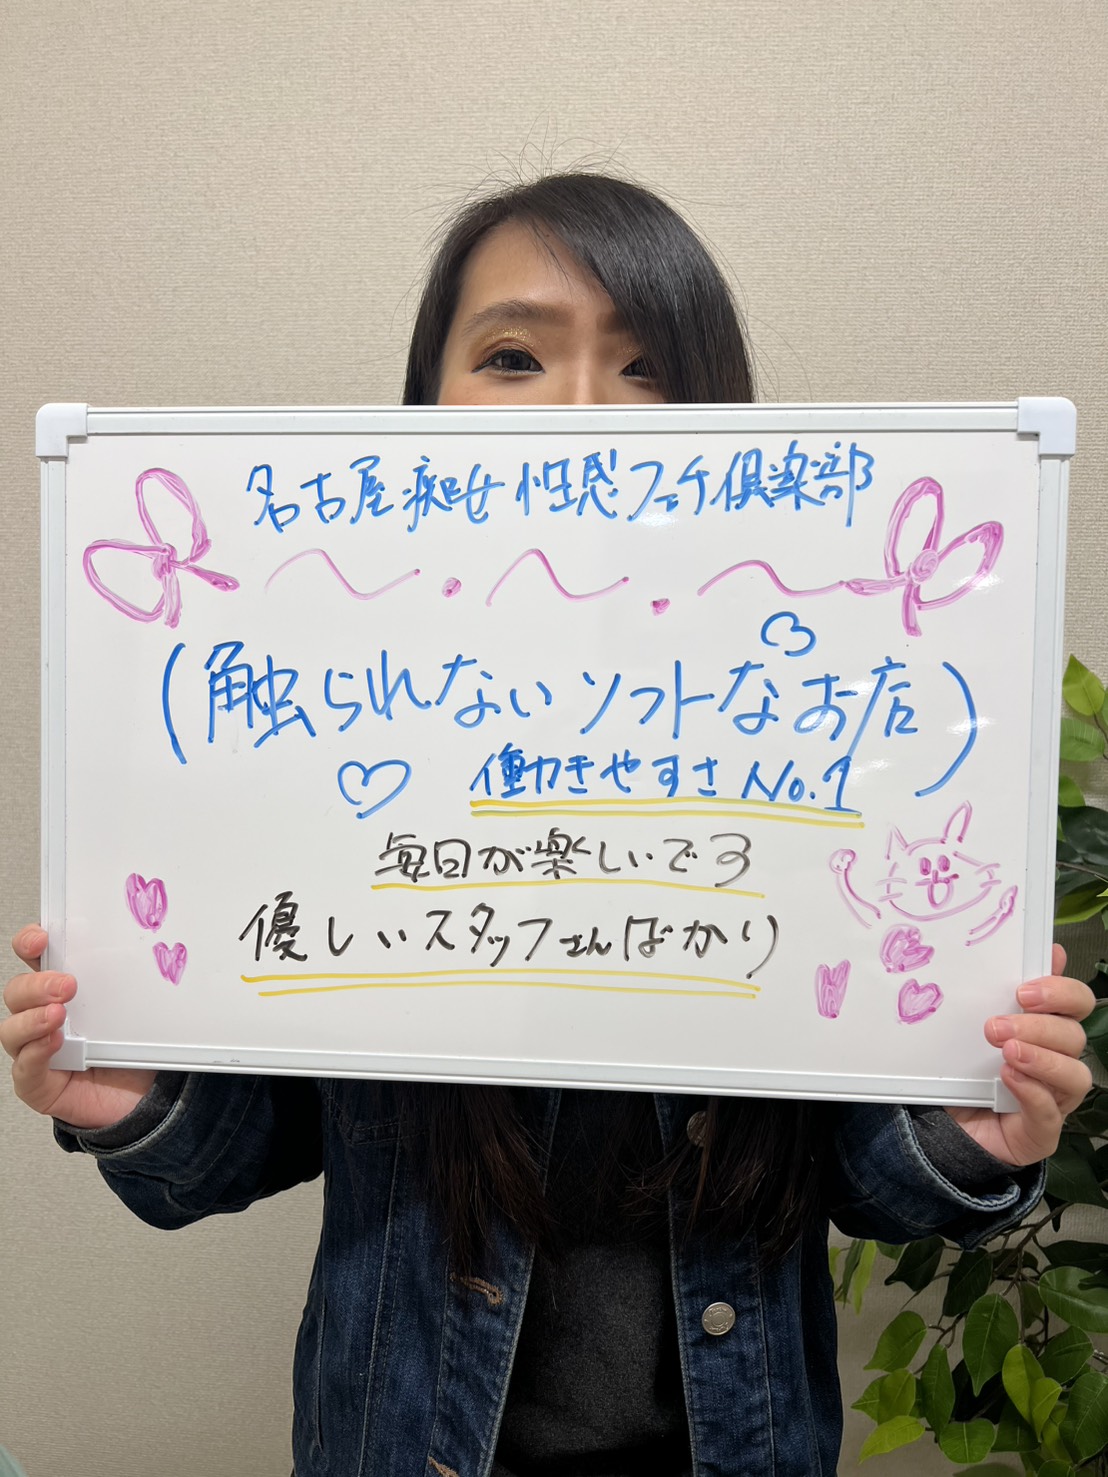 名古屋痴女性感フェチ倶楽部
(触られないソフトなお店)
働きやすさNo.1
毎日が楽しいです
優しいスタッフさんばかり